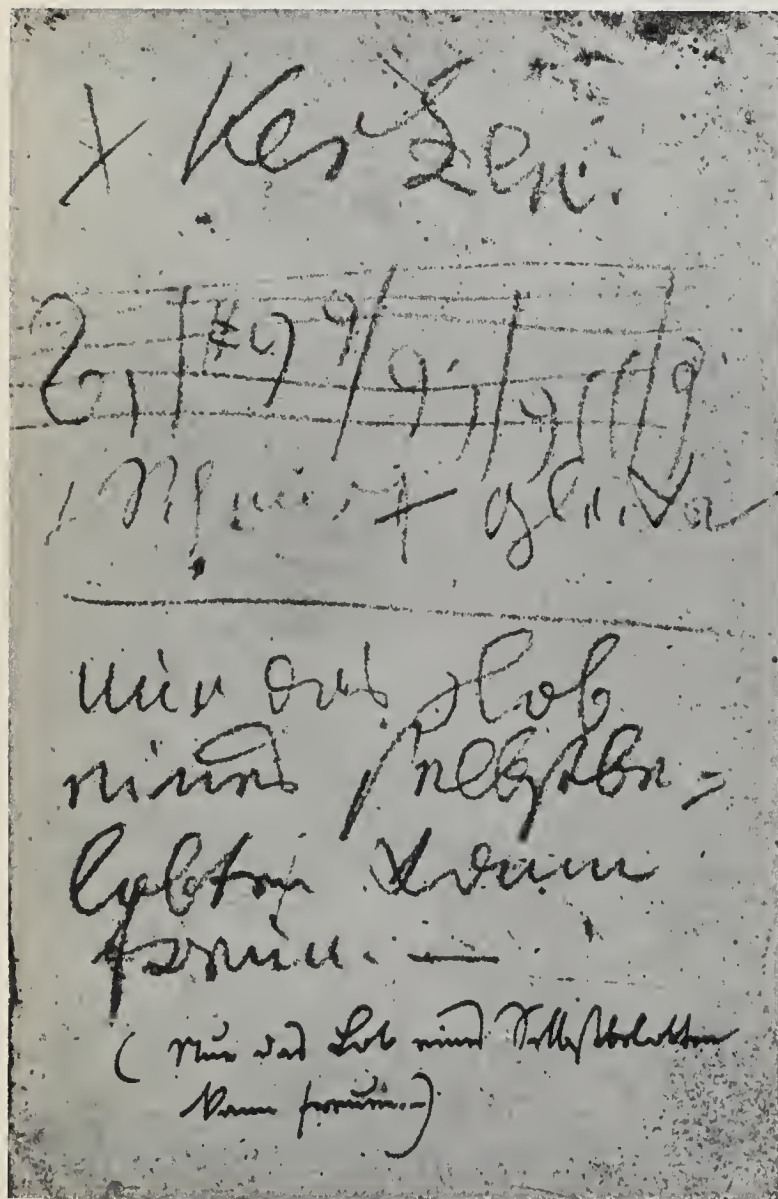 x Kerzen.
nur das Lob
eines selbstbe=
lobten kann
freuen. —
( Nur das Lob eines Selbstbelobten
kann freuen.—)